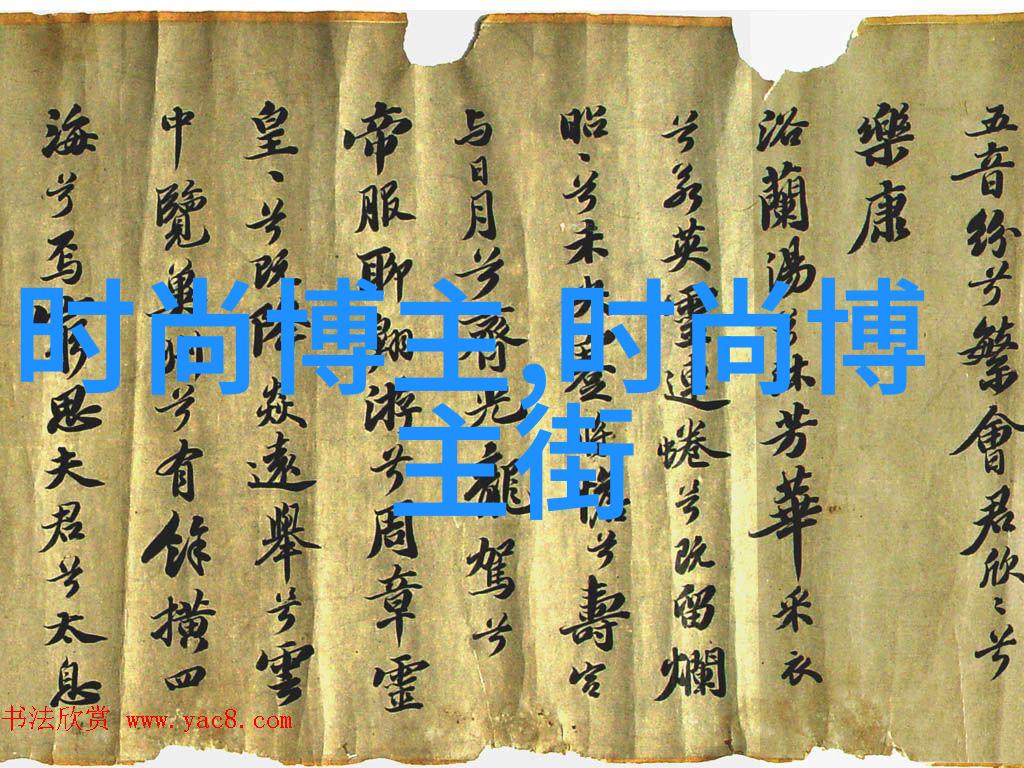 五音紛兮繁會君欣〻兮
樂康
浴蘭湯兮沐芳華采衣
兮若英靈連蜷兮既留爛
昭〻兮未央將憺兮壽宮
与日月兮齊光龍駕兮
帝服聊翱游兮周章靈
皇〻兮既降焱遠舉兮雲
中覽冀州兮有餘橫四
海兮焉窮思夫君兮太息
时尚博主,时尚博
主街
书法欣赏 www.yac8.com